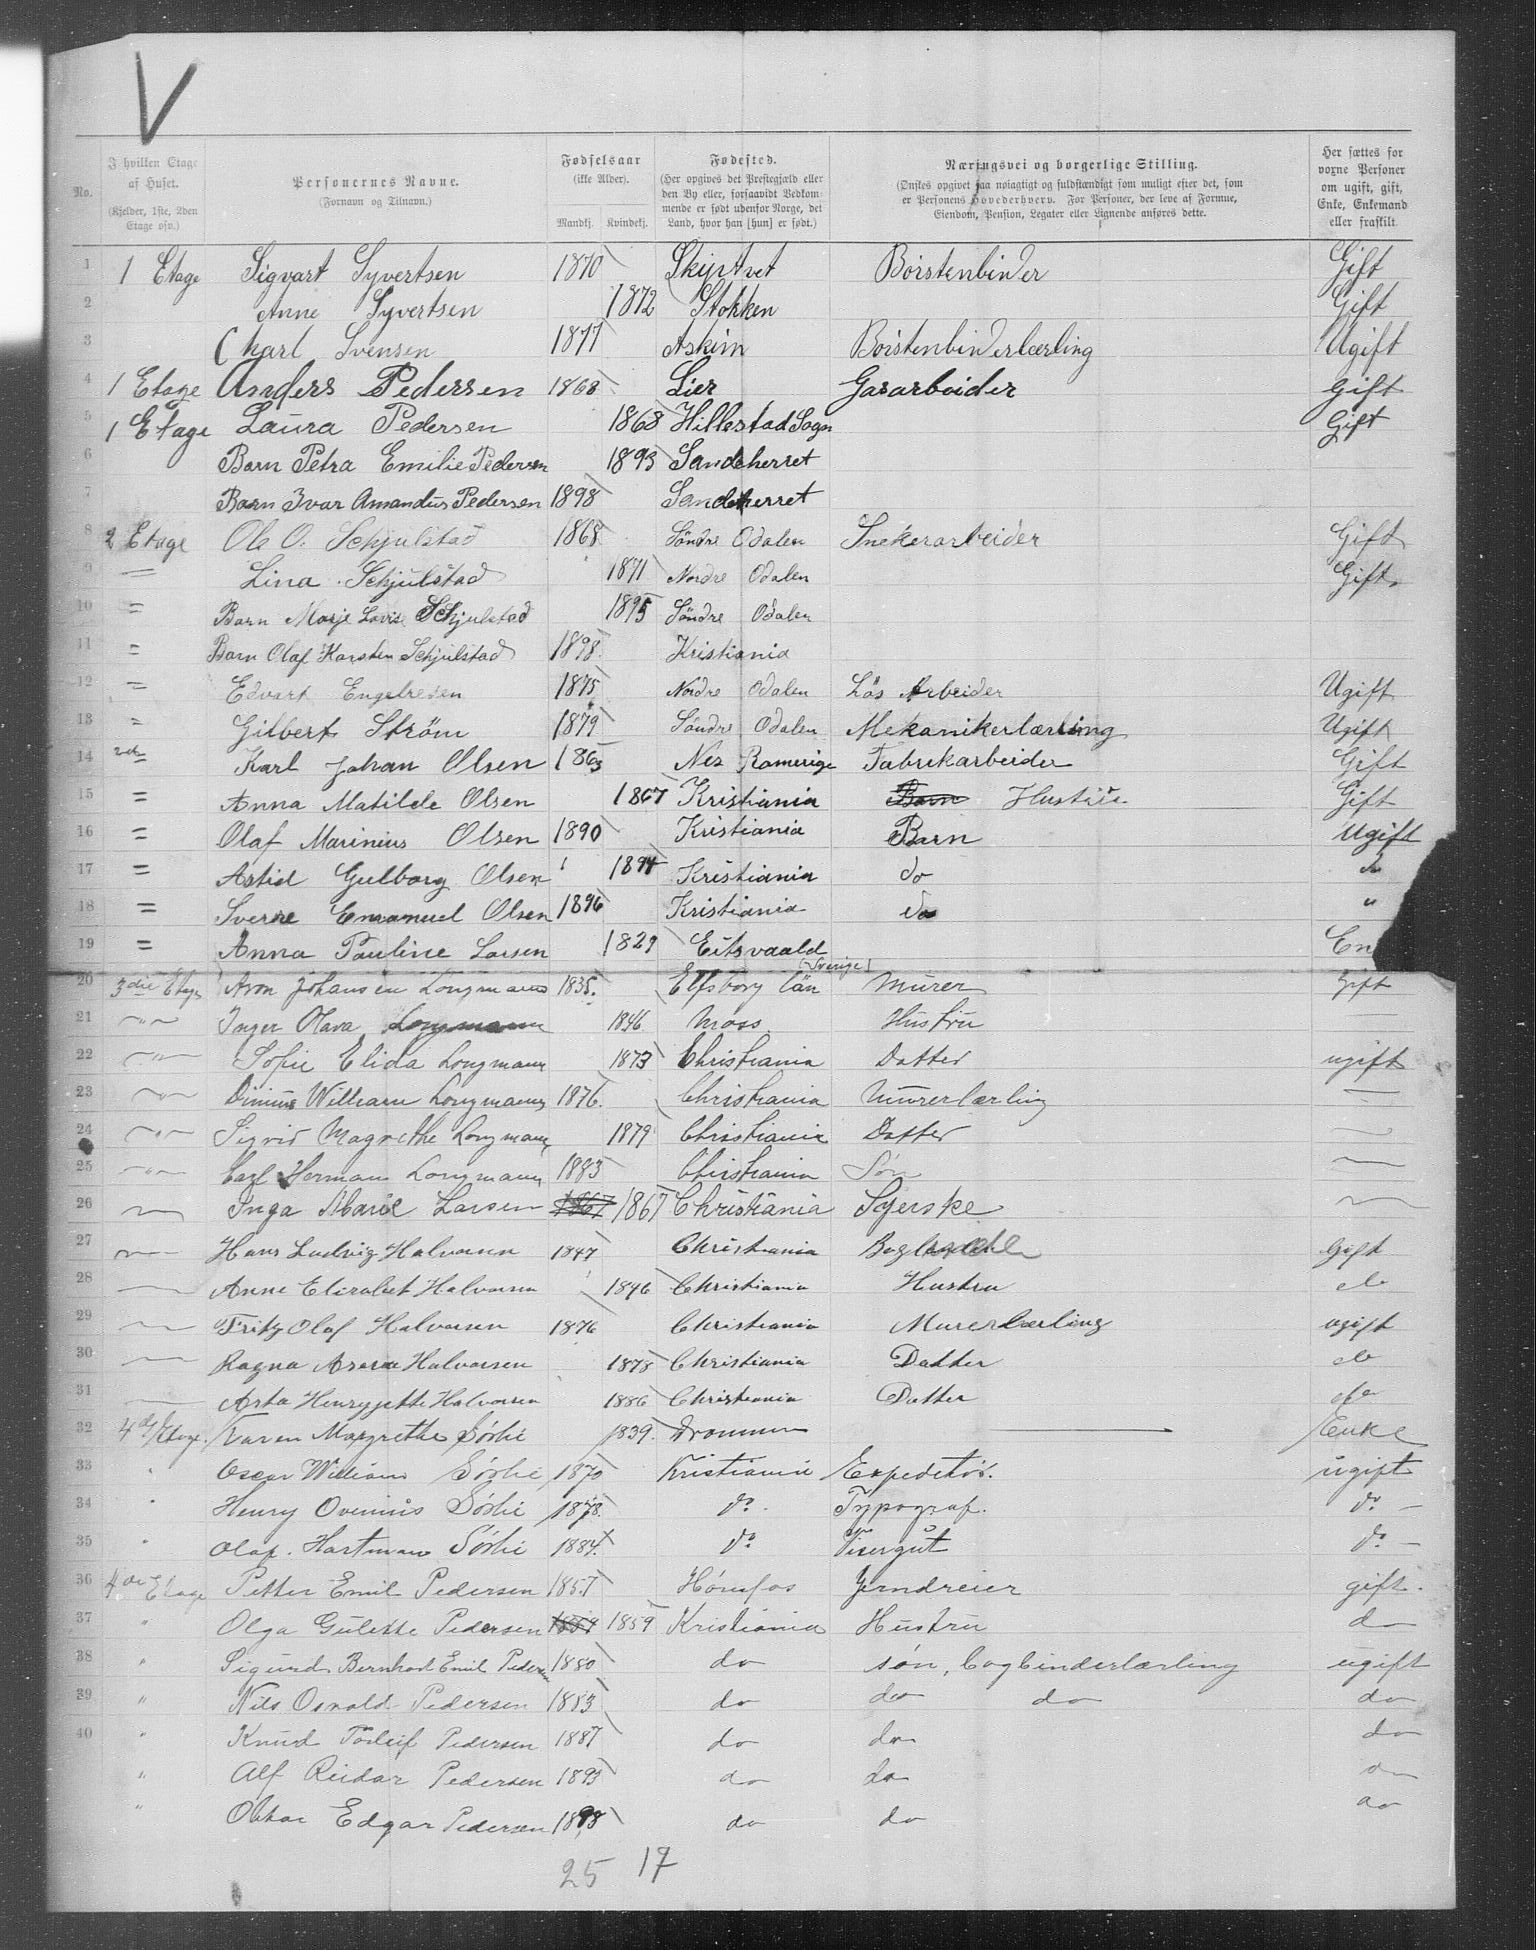 V
No.
I hvilken Etage af Huset. (Kjelder, 1ste, 2den Etage osv.)
Personernes Navne. (Fornavn og Tilnavn.)
Fødselsaar (ikke Alder). Mandkj. Kvindekj.
Fødested. (Her opgives det Prestegjæld eller den By eller, forsaavidt Vedkommende er født udenfor Norge, det Land, hvor han [hun] er født.)
Næringsvei og borgerlige Stilling. (Ønskes opgivet saa nøiagtigt og fuldstændigt som muligt efter det, som er Personens Hovederhverv. For Personer, der leve af Formue, Eiendom, Pension, Legater eller Lignende anføres dette.)
Her sættes for voxne Personer om ugift, gift, Enke, Enkemand eller fraskilt.
1 1 Etage Sigvart Syvertsen 1870 Skiptvet Borstenbinder Gift
2 Anne Syvertsen 1872 Stokken Gift
3 Charl Svensen 1877 Askim Borstenbinderlærling Ugift
4 1 Etage Anders Pedersen 1868 Lier Gasarbeider Gift
5 1 Etage Laura Pedersen 1868 Hillestad Sogn Gift
6 Barn Petra Emilie Pedersen 1893 Sandeherret
7 Barn Ivar Amandus Pedersen 1898 Sandeherret
8 2 Etage Ole O. Schjulstad 1868 Söndre Odalen Snekerarbeider Gift
9 — Lina Schjulstad 1871 Nordre Odalen Gift
10 = Barn Marje Lovis Schjulstad 1895 Söndre Odalen
11 = Barn Olaf Karsten Schjulstad 1898 Kristiania
12 = Edvart Engebresen 1875 Nordre Odalen Lös Arbeider Ugift
13 = Gilbert Ström 1879 Söndre Odalen Mekanikerlærling Ugift
14 2den Karl Johan Olsen 1863 Nes Romerige Fabrikarbeider Gift
15 = Anna Matilde Olsen 1867 Kristiania Barn Hustru Gift
16 = Olaf Marinius Olsen 1890 Kristiania Barn Ugift
17 = Astid Gulborg Olsen 1894 Kristiania do
18 = Sverre Emanuel Olsen 1896 Kristiania do "
19 = Anna Pauline Larsen 1829 Eitsvaald En
20 3die Etage Aron Johansen Longmann 1835. Elfsborg län (Sverige) Murer Gift
21 —"— Inger Olava Longmann 1846 Moss Hustru
22 —"— Sofie Elida Longmann 1873 Christiania Datter ugift
23 —"— Dinius William Longmann 1876. Christiania Murerlærling —
24 —"— Sigrid Magrethe Longmann 1879 Christiania Datter —
25 —"— Carl Herman Longmann 1883 Christiania Søn —
26 — Inga Marie Larsen 1867 1867 Christiania Syerske —
27 — Hans Ludvig Halvorsen 1847 Christiania Gift
28 — Anne Elisabet Halvorsen 1846 Christiania Hustru do
29 — Fritz Olaf Halvorsen 1876 Christiania Murerlærling ugift
30 — Ragna Halvorsen 1878 Christiania Datter do
31 — Asta Henrygette Halvorsen 1886 Christiania Datter do
32 4de Etage. Karen Margrethe Sörlie 1839. Drammen — Enke
33 " Oscar William Sörlie 1870 Kristiania Expeditör. ugift
34 " Henry Ovenius Sörlie 1878. do. Typograf. do —
35 " Olaf. Hartman Sörlie 1884. do Visergut do —
36 4de Etage Petter Emil Pedersen 1857 Hönefos Jerndreier gift.
37 " Olga Gulette Pedersen 1859 Kristiania Hustru do
38 " Sigurd Bernhard Emil Pedersen 1880 do søn, bogbinderlærling ugift
39 " Nils Osvald Pedersen 1883 do do do do
40 " Knud Torleif Pedersen 1887 do do do
" Alf Reidar Pedersen 1893 do do do
" Oskar Edgar Pedersen 1898 do do do
25 17